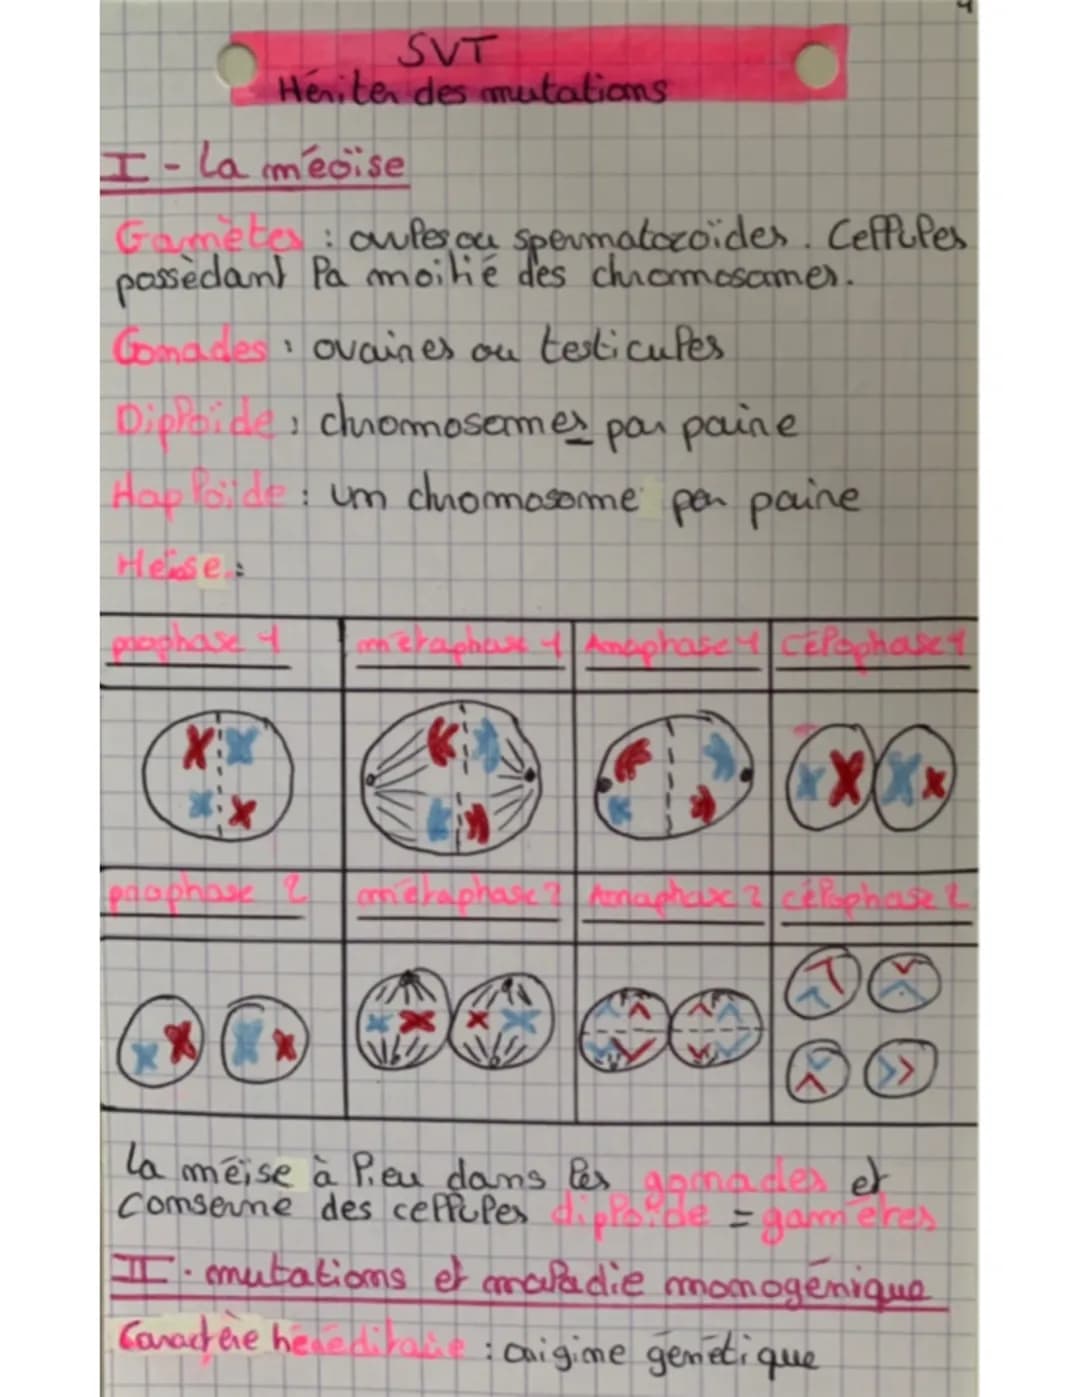 SVT
Hériter des mutations
I - La méoïse
Gamètes : ovules ou spermatozoïdes. Cellules
possèdant la moitié des chromosomes.
Gonades : ovaires ou testicules
Diploïde : chromosomes par paire
Haploïde : un chromosome par paire
Meïose :
prophase 1 métaphase 1 Anaphase 1 télophase 1
prophase 2 métaphase 2 Anaphase 2 télophase 2
La méise à lieu dans les gonades et
conserne des cellules diploïde = gamètes
II. mutations et maladie monogénique
Caractère héréditaire : origine génétique